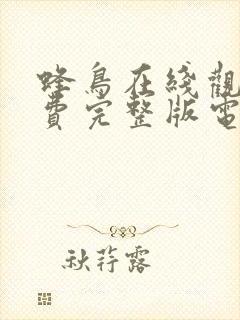 蜂鳥在綫觀
費完整版電
秋荇露